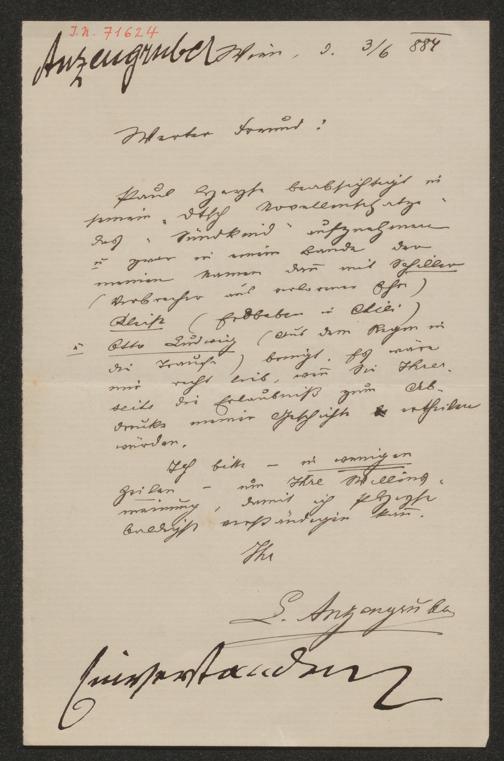 I.N. 71624
Anzengruber
Wien, d. 3/6 884
Werter Freund!
Paul Heyse beabsichtigt in
seinem "Dtsch Novellenschatze"
das "Sündkind" aufzunehmen
u zwar in einem Bande der
meinen Namen dan̄ mit Schiller
(Verbrecher aus verlorener Ehre)
Kleist (Erdbeben in Chili)
u Otto Ludwig (Aus dem Regen in
die Traufe) bringt. Es wäre
mir recht lieb, wen̄ Sie Ihrer-
seits die Erlaubniß zum Ab-
drucke meiner Geschichte ertheilen
würden.
Ich bitte – in wenigen
Zeilen – um Ihre Willens-
meinung, damit ich P Heyse
baldigst verständigen kan̄.
Ihr
L. Anzengruber
Einverstanden